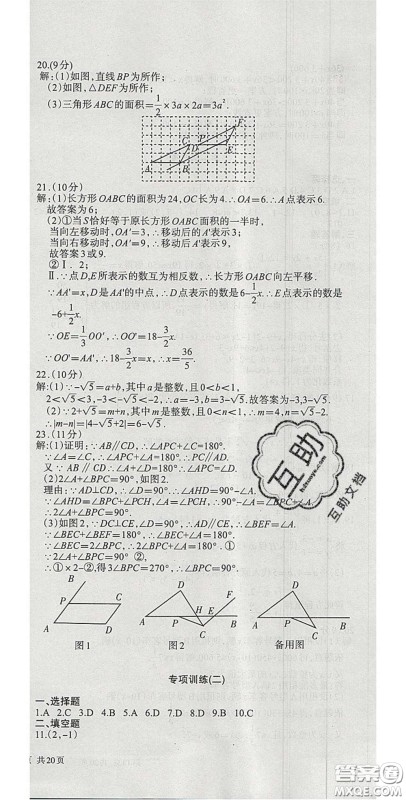 20.(9分)
解:(1)如图,直线BP为所作;
(2)如图,△DEF为所作;
(3)三角形ABC的面积=1/2×3a×2a=3a².
A B C D E F P
21.(10分)
解:(1)长方形OABC的面积为24,OC长为4.∴OA=6.∴A点表示6.
故答案为6;
(2)①当S恰好等于原长方形OABC面积的一半时,
当向左移动时,OA′=3,∴移动后的A′表示3;
当向右移动时,OA′=9,∴移动后的A′表示9.
故答案3或9.
②Ⅰ.2;
Ⅱ.∵点D,E所表示的数互为相反数,∴长方形OABC向左平移.
∵AA′=x,D是AA′的中点,∴D点表示的数是6-1/2x.∴E点表示的数是
-6+1/2x.
∵OE=1/3OO′,∴OO′=18-3/2x.
∵OO′=AA′,∴18-3/2x=x,∴x=36/5.
22.(10分)
解:(1)∵-√5=a+b,其中a是整数,且0<b<1,
2<√5<3,-3<-√5<-2,∴a=-3,b=3-√5.故答案为-3,3-√5.
(2)∵2+√5=m+n,其中m是整数,且0<n<1,∴m=4,n=√5-2.
∴|m-n|=|4-√5+2|=6-√5.
23.(11分)
解:(1)证明:∵AB∥CD,∴∠APC+∠C=180°.
∵∠A=∠C,∴∠APC+∠A=180°.∴PC∥AD.
又∵AB∥CD,∴∠A+∠D=180°.
(2)2∠A+∠BPC=90°,如图2.
理由:∵AD⊥CD,∴∠D=90°.∴∠AHD=90°-∠A.
∴∠PHC=∠AHD=90°-∠A.
∵∠A=∠BPC+∠PCH,∠BPC+∠PCH+∠PHC=180°,
∴∠A+∠BPC+90°-∠A=180°.∴2∠A+∠BPC=90°.
(3)如图2,∵DC⊥CE,∠D=∠DCE=90°.∴AD∥EF.∴∠BEF=∠A.
∵∠BEF+∠BEC=180°,∴∠A+∠BEC=180°.
∵∠BEC=2∠BPC,∴2∠BPC+∠A=180°①.
∵2∠A+∠BPC=90°②,
∴①×2-②,得3∠BPC=270°,∴∠BPC=90°.
B P C A D
图1
D H E F A P B C
图2
D A P B C
备用图
专项训练(二)
一、选择题
1.A 2.C 3.D 4.B 5.D 6.B 7.D 8.B 9.D 10.C
二、填空题
11.(2,-1)
共20页
互助
互助文档
答案圈
MXQE.COM